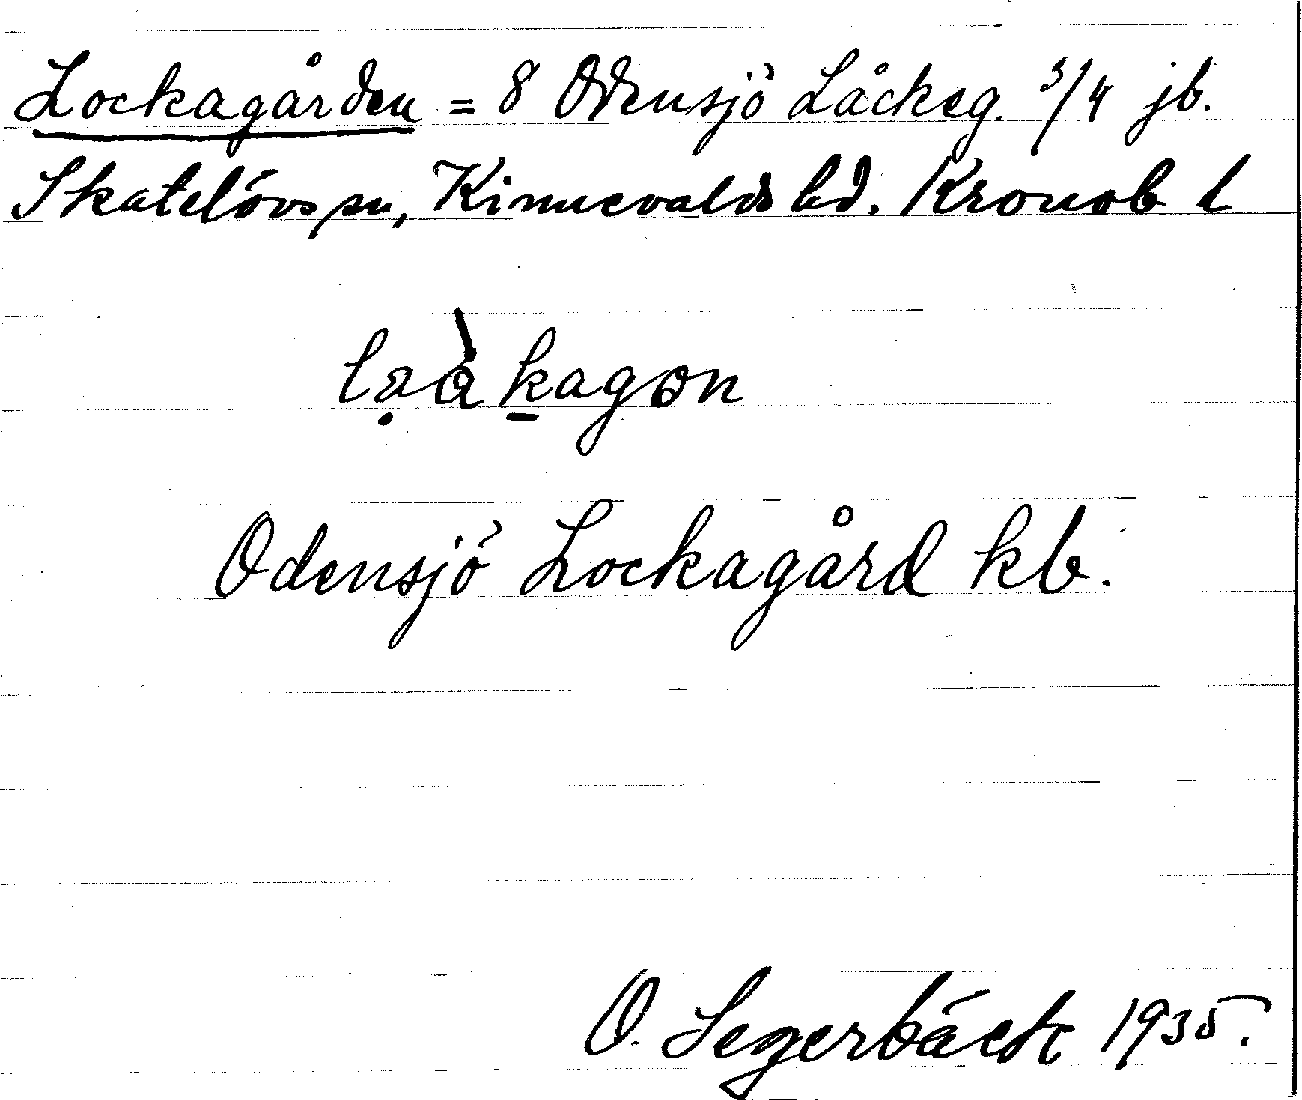 Lockagården = 8 Odensjö Låckeg. 3/4 jb.
Skatelövs sn, Kinnevalds hd. Kronob l
Odensjö Lockagård kb.
O. Segerbäck 1935.